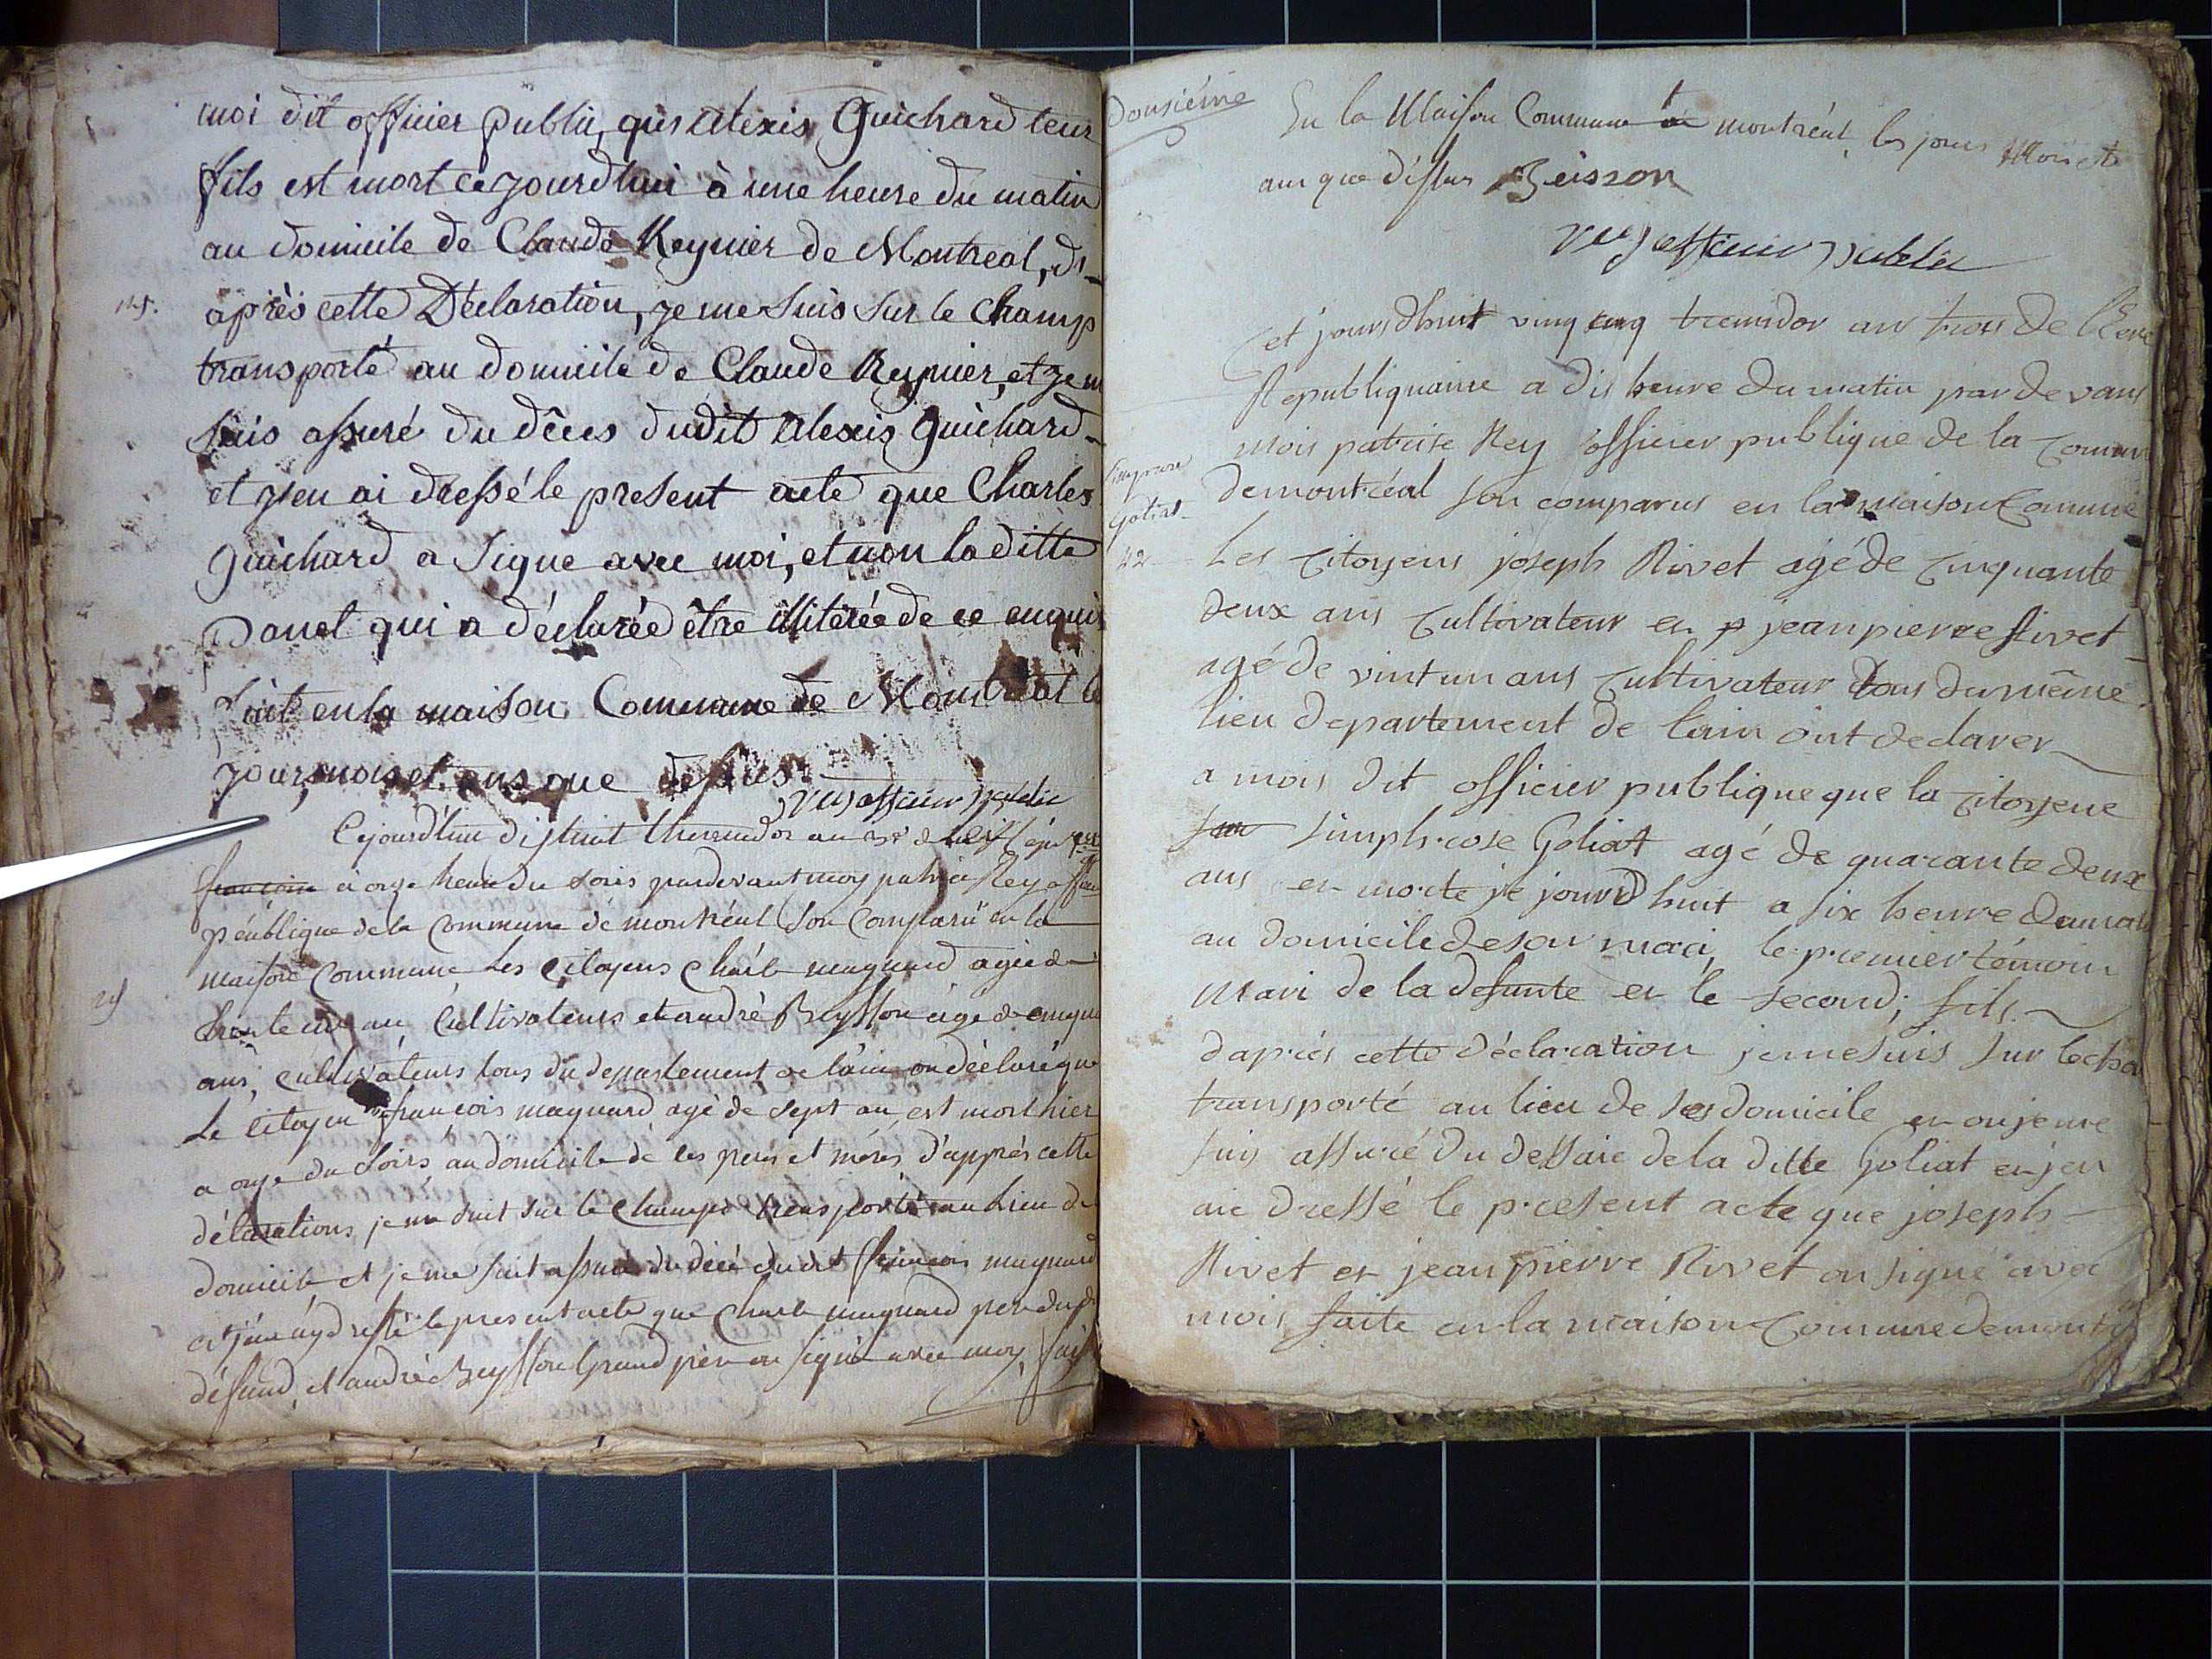 moi dit officier public, que alexis Guichard leur
fils est mort ce jourdhui à une heure du matin
au domicile de Claude Reynier de Montreal, d'
après cette Déclaration, je me suis sur le champ
transporté au domicile de Claude Reynier, et je m
suis assuré du décès dudit alexis Guichard
et j'en ai dressé le present acte que Charles
Guichard a signe avec moi, et non la ditte
Danet qui a déclarée être illitérée de ce enquis
fait en la maison Commune de Montreal le
jour, mois et ans que dessus
Rey officier public
Cejourd'hui dishuit thermidor an
françoise à onze heure du soirs pardevant moy patrice Rey offici
péublique de la Commune de montréal son Comparu en la
maison Commune Les Citoyens charle maynard agée de
trente ans Cultivateurs et andré Beysson agé de
ans, cultivateurs tous du departement de l'ain on déclaré que
Le citoyen françois maynard agé de sept an est mort hier
a onze du soirs au domicile de ses peres et méres, d'apprés cette
déclarations je me suit sur le champs transporté au Lieu de
domicile et je me suit assuré du décé dudit françois maynard
et j'en ay dressé le present acte que charle maynard pere du d
défund, et andré Beysson Grand père on signé avec moy, fait
Dousiéme
En la Maison Commune de montréal les jours Mois et
an que dessus Beisson
Rey officier public
Cet jours dhuit ving cinq tremidor an trois de l'Ere
Republiquaine a dis heure du matin par devans
mois patrise Rey officier publique de la Comun
Simprose
Goliat
42
demontréal son comparus en la maison Comune
Les Citoyens joseph Rivet agé de Cinquante
deux ans Cultivateur er jean pierre Rivet
agé de vint un ans Cultivateur tous du même
lieu departement de l'ain ont declarer
a mois dit officier publique que la Citoyene
simphrose Goliat agé de quarante deux
ans er morte je jourd huit a six heure du mat
au domicile de son mari, le premier témoin
Mari de la defunte er le second, fils
d'aprés cette déclaration je me suis sur le cha
transporté au lieu de ses domicile er ou je me
suis assuré du dessaie de la ditte Goliat er jen
aie dressé le present acte que joseph
Rivet er jean pierre Rivet on signé avec
mois faite en la maison Comune demont